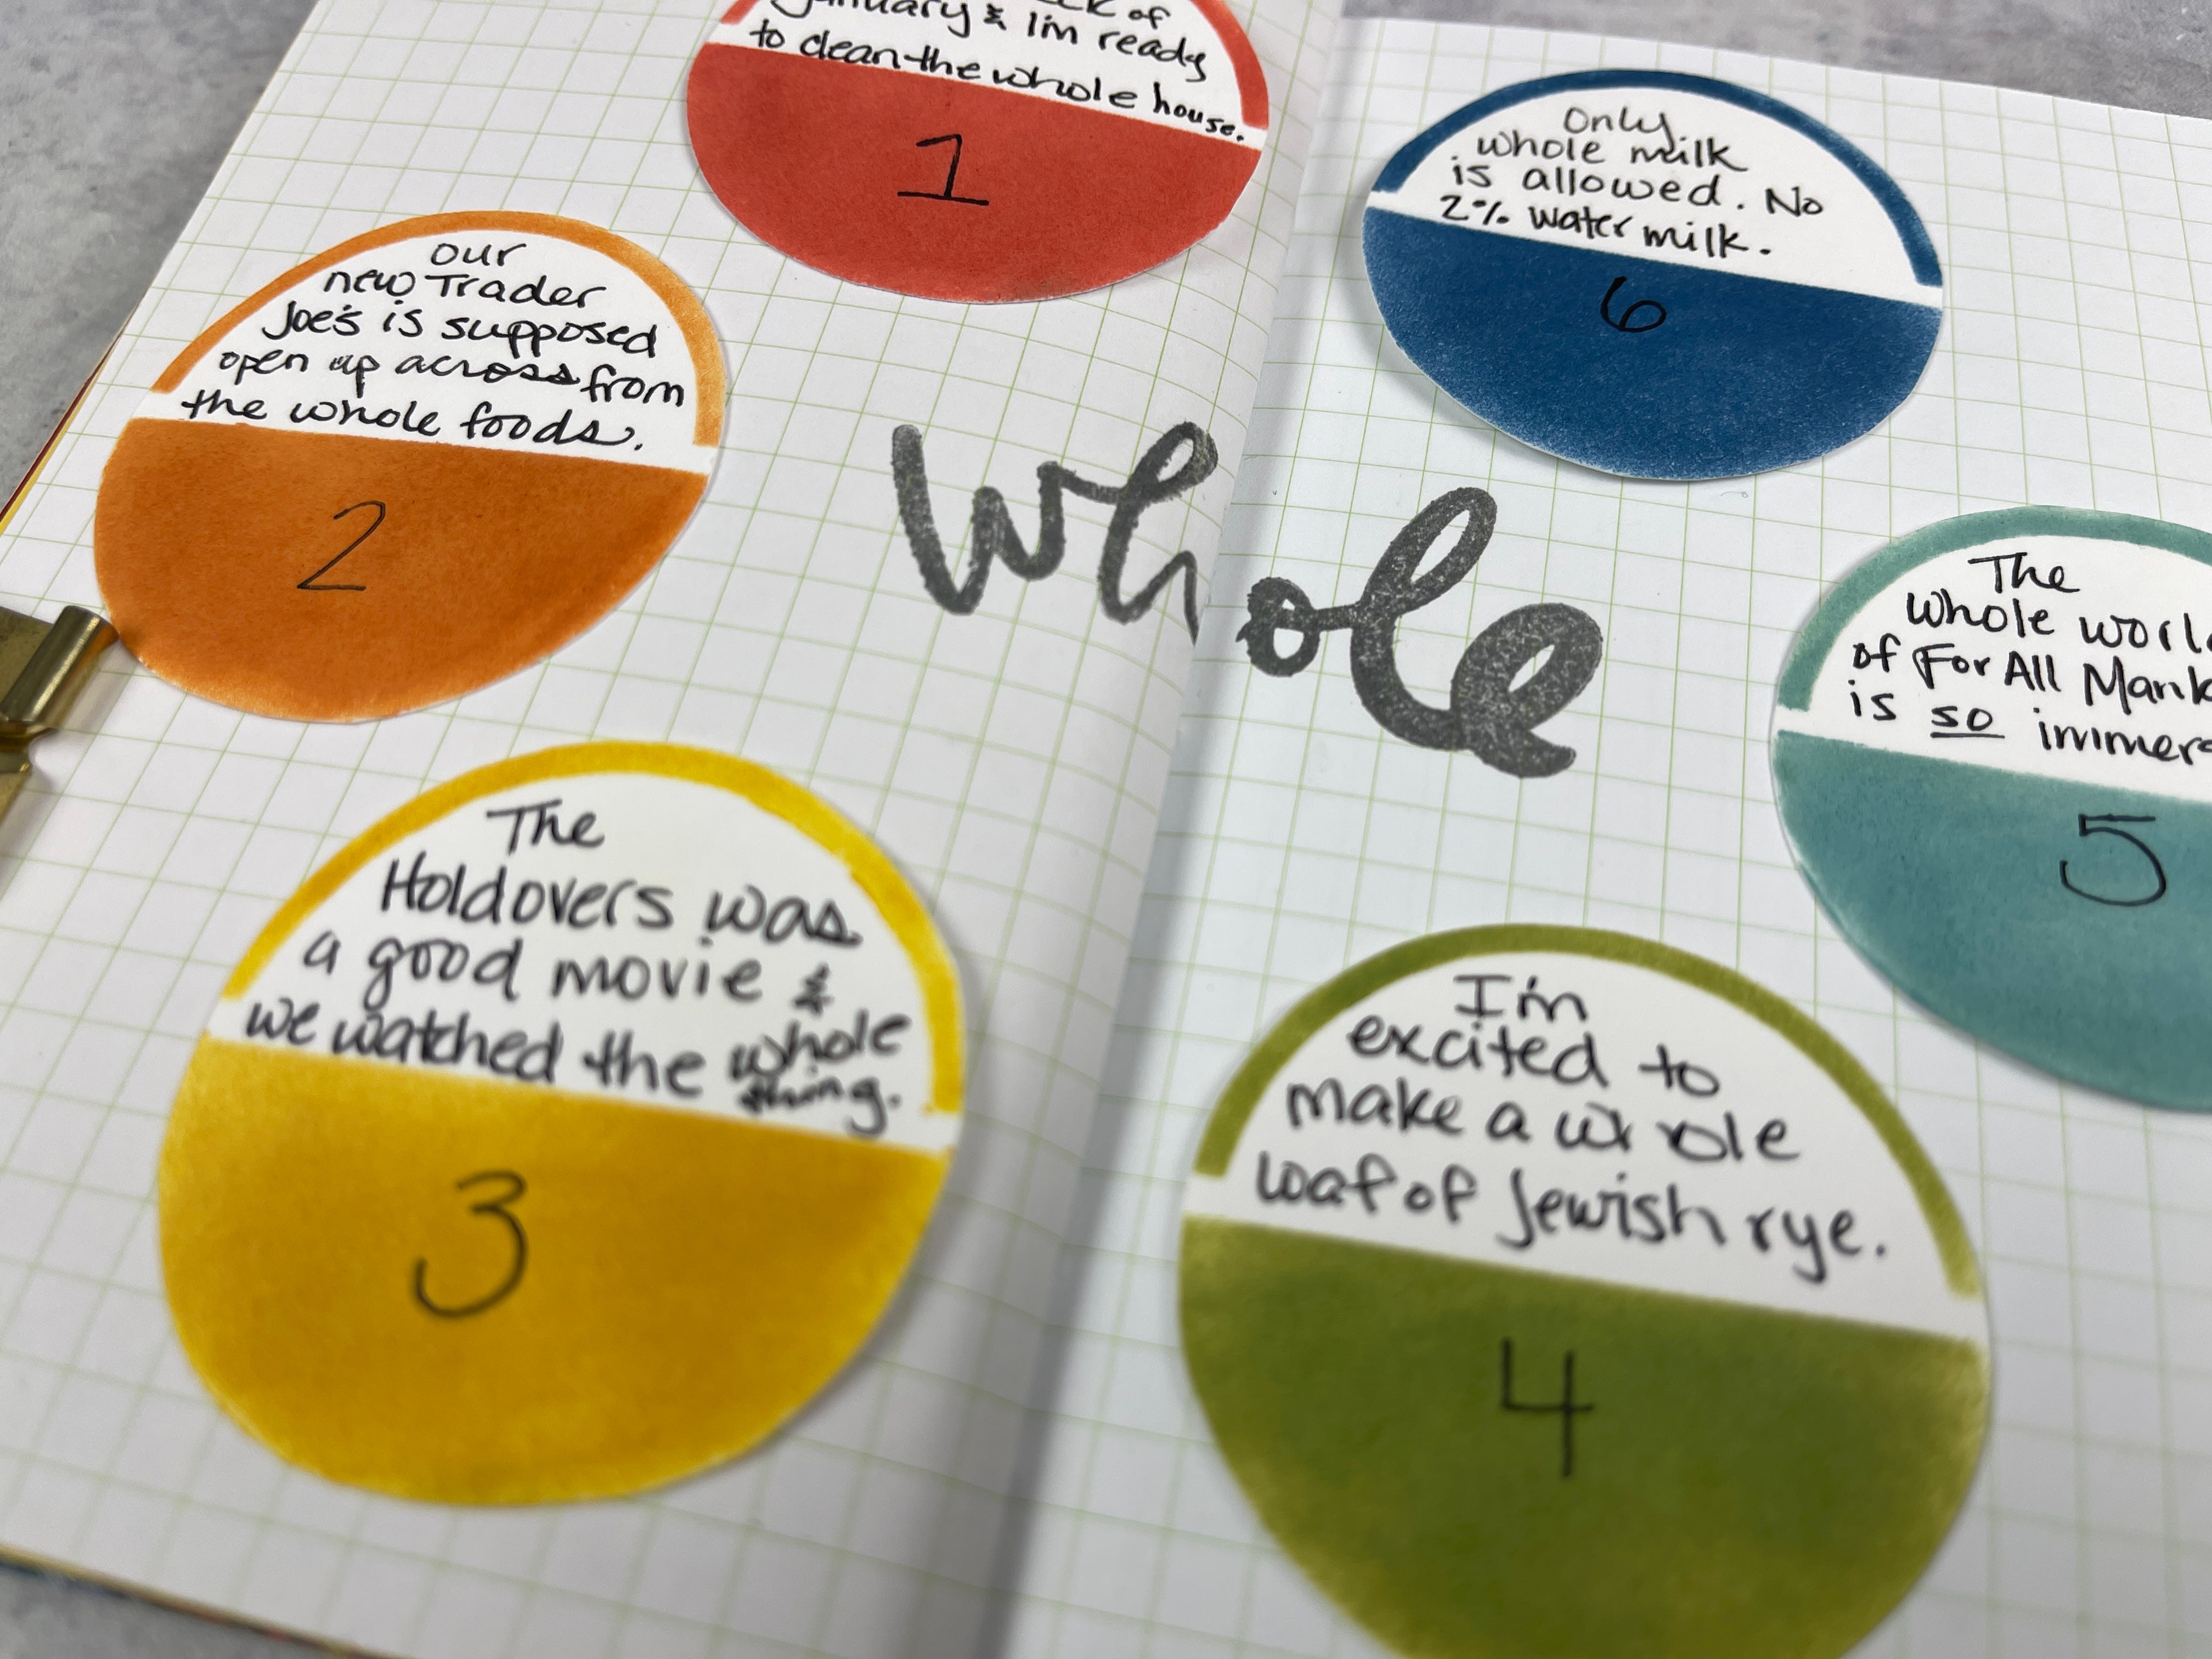 of
January & I'm ready
to clean the whole house.
1
our
new Trader
Joe's is supposed
open up across from
the whole foods.
2
The
Holdovers was
a good movie &
we watched the whole
thing.
3
whole
Only
whole milk
is allowed. No
2% water milk.
6
The
whole worl
of For All Mank
is so immers
5
I'm
excited to
make a whole
loaf of Jewish rye.
4